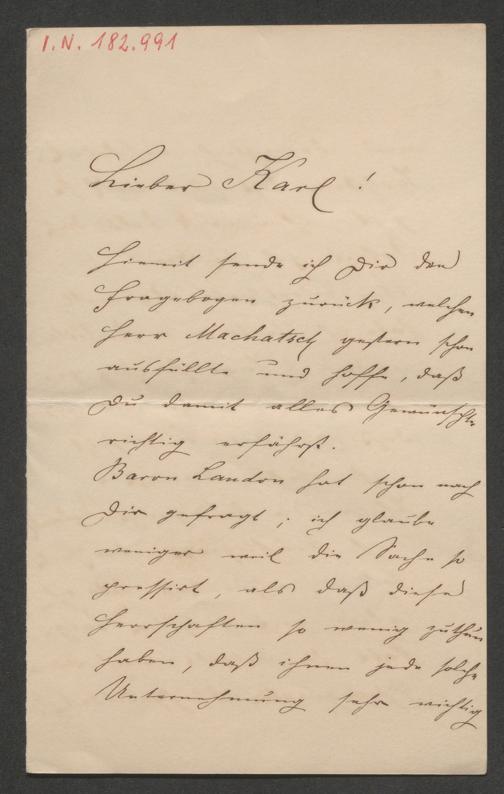 I.N. 182.991
Lieber Karl!
Hiemit sende ich Dir den
Fragebogen zurück, welchen
Herr Machatsch gestern schon
ausfüllte und hoffe, daß
Du damit alles Gewünschte
richtig erfährst.
Baron Laudon hat schon nach
Dir gefragt; ich glaube
weniger weil die Sache so
pressirt, als daß diese
Herrschaften so wenig zuthun
haben, daß ihnen jede solche
Unternehmung sehr wichtig